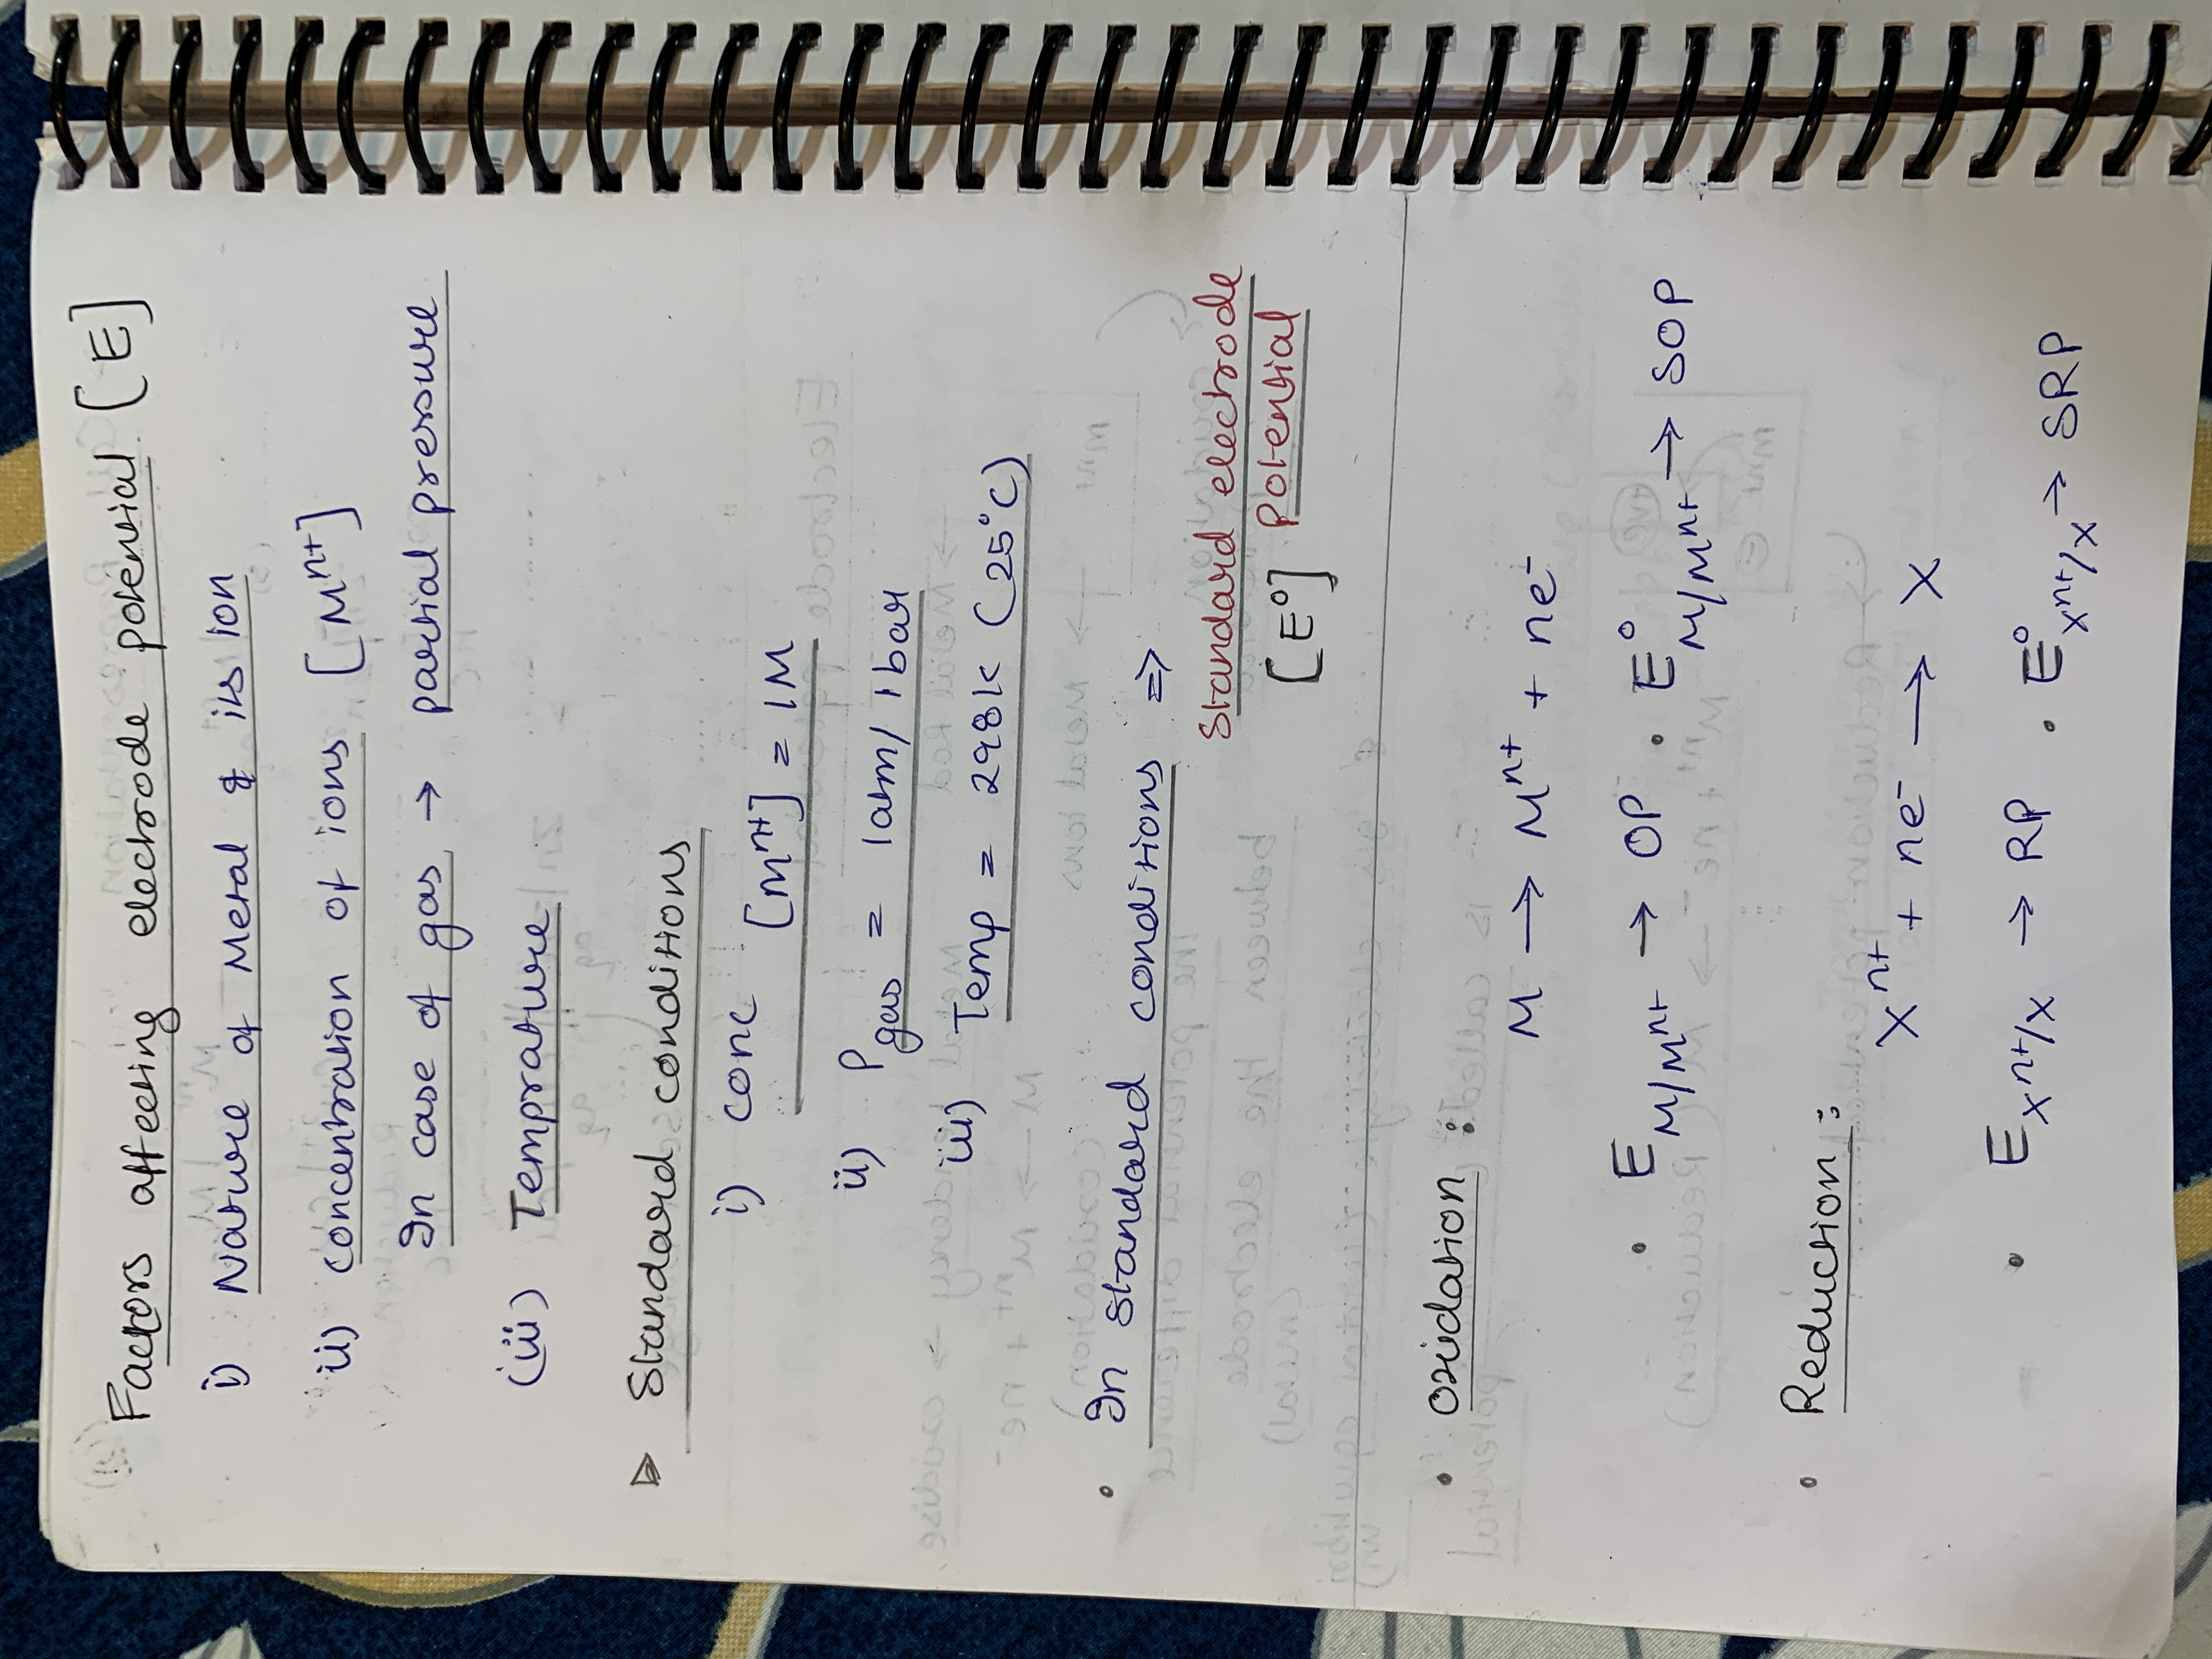 Factors affecting electrode potential [E]
i) Nature of Metal & its ion
ii) concentration of ions [Mⁿ⁺]
In case of gas → partial pressure
(iii) Temprature
▷ Standard conditions
i) conc [Mⁿ⁺] = 1M
ii) Pgas = 1atm/ 1bar
iii) Temp = 298K (25°C)
• In standard conditions ⇒
Standard electrode
[E°] Potential
• Oxidation :
M → Mⁿ⁺ + ne⁻
• E M/Mⁿ⁺ → OP • E° M/Mⁿ⁺ → SOP
• Reduction :
Xⁿ⁺ + ne⁻ → X
• E Xⁿ⁺/X → RP • E° Xⁿ⁺/X → SRP